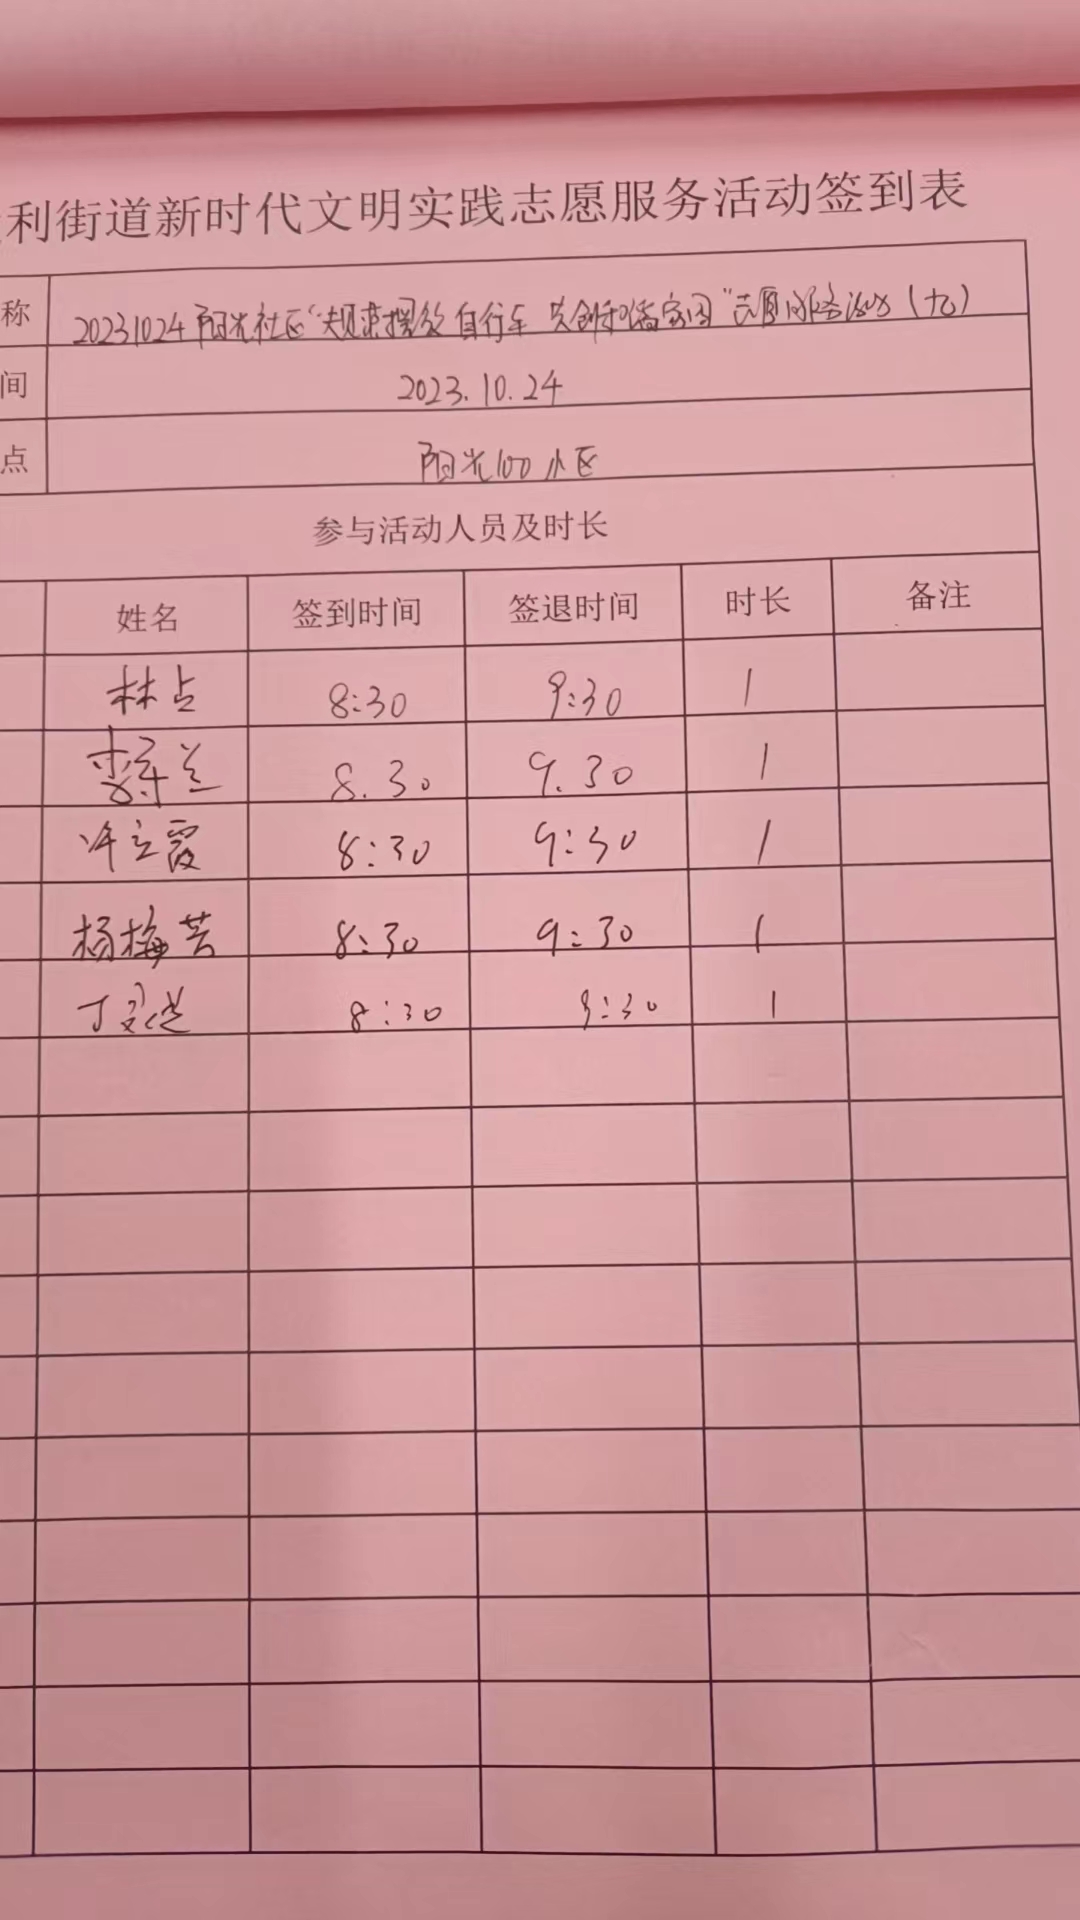 利街道新时代文明实践志愿服务活动签到表
称 20231024阳光社区“规束摆放自行车 共创和谐家园”志愿服务活动(九)
间 2023.10.24
点 阳光100小区
参与活动人员及时长
姓名 签到时间 签退时间 时长 备注
林占 8:30 9:30 1
李军兰 8.30 9.30 1
许立霞 8:30 9:30 1
杨梅芳 8:30 9:30 1
丁 8:30 9:30 1